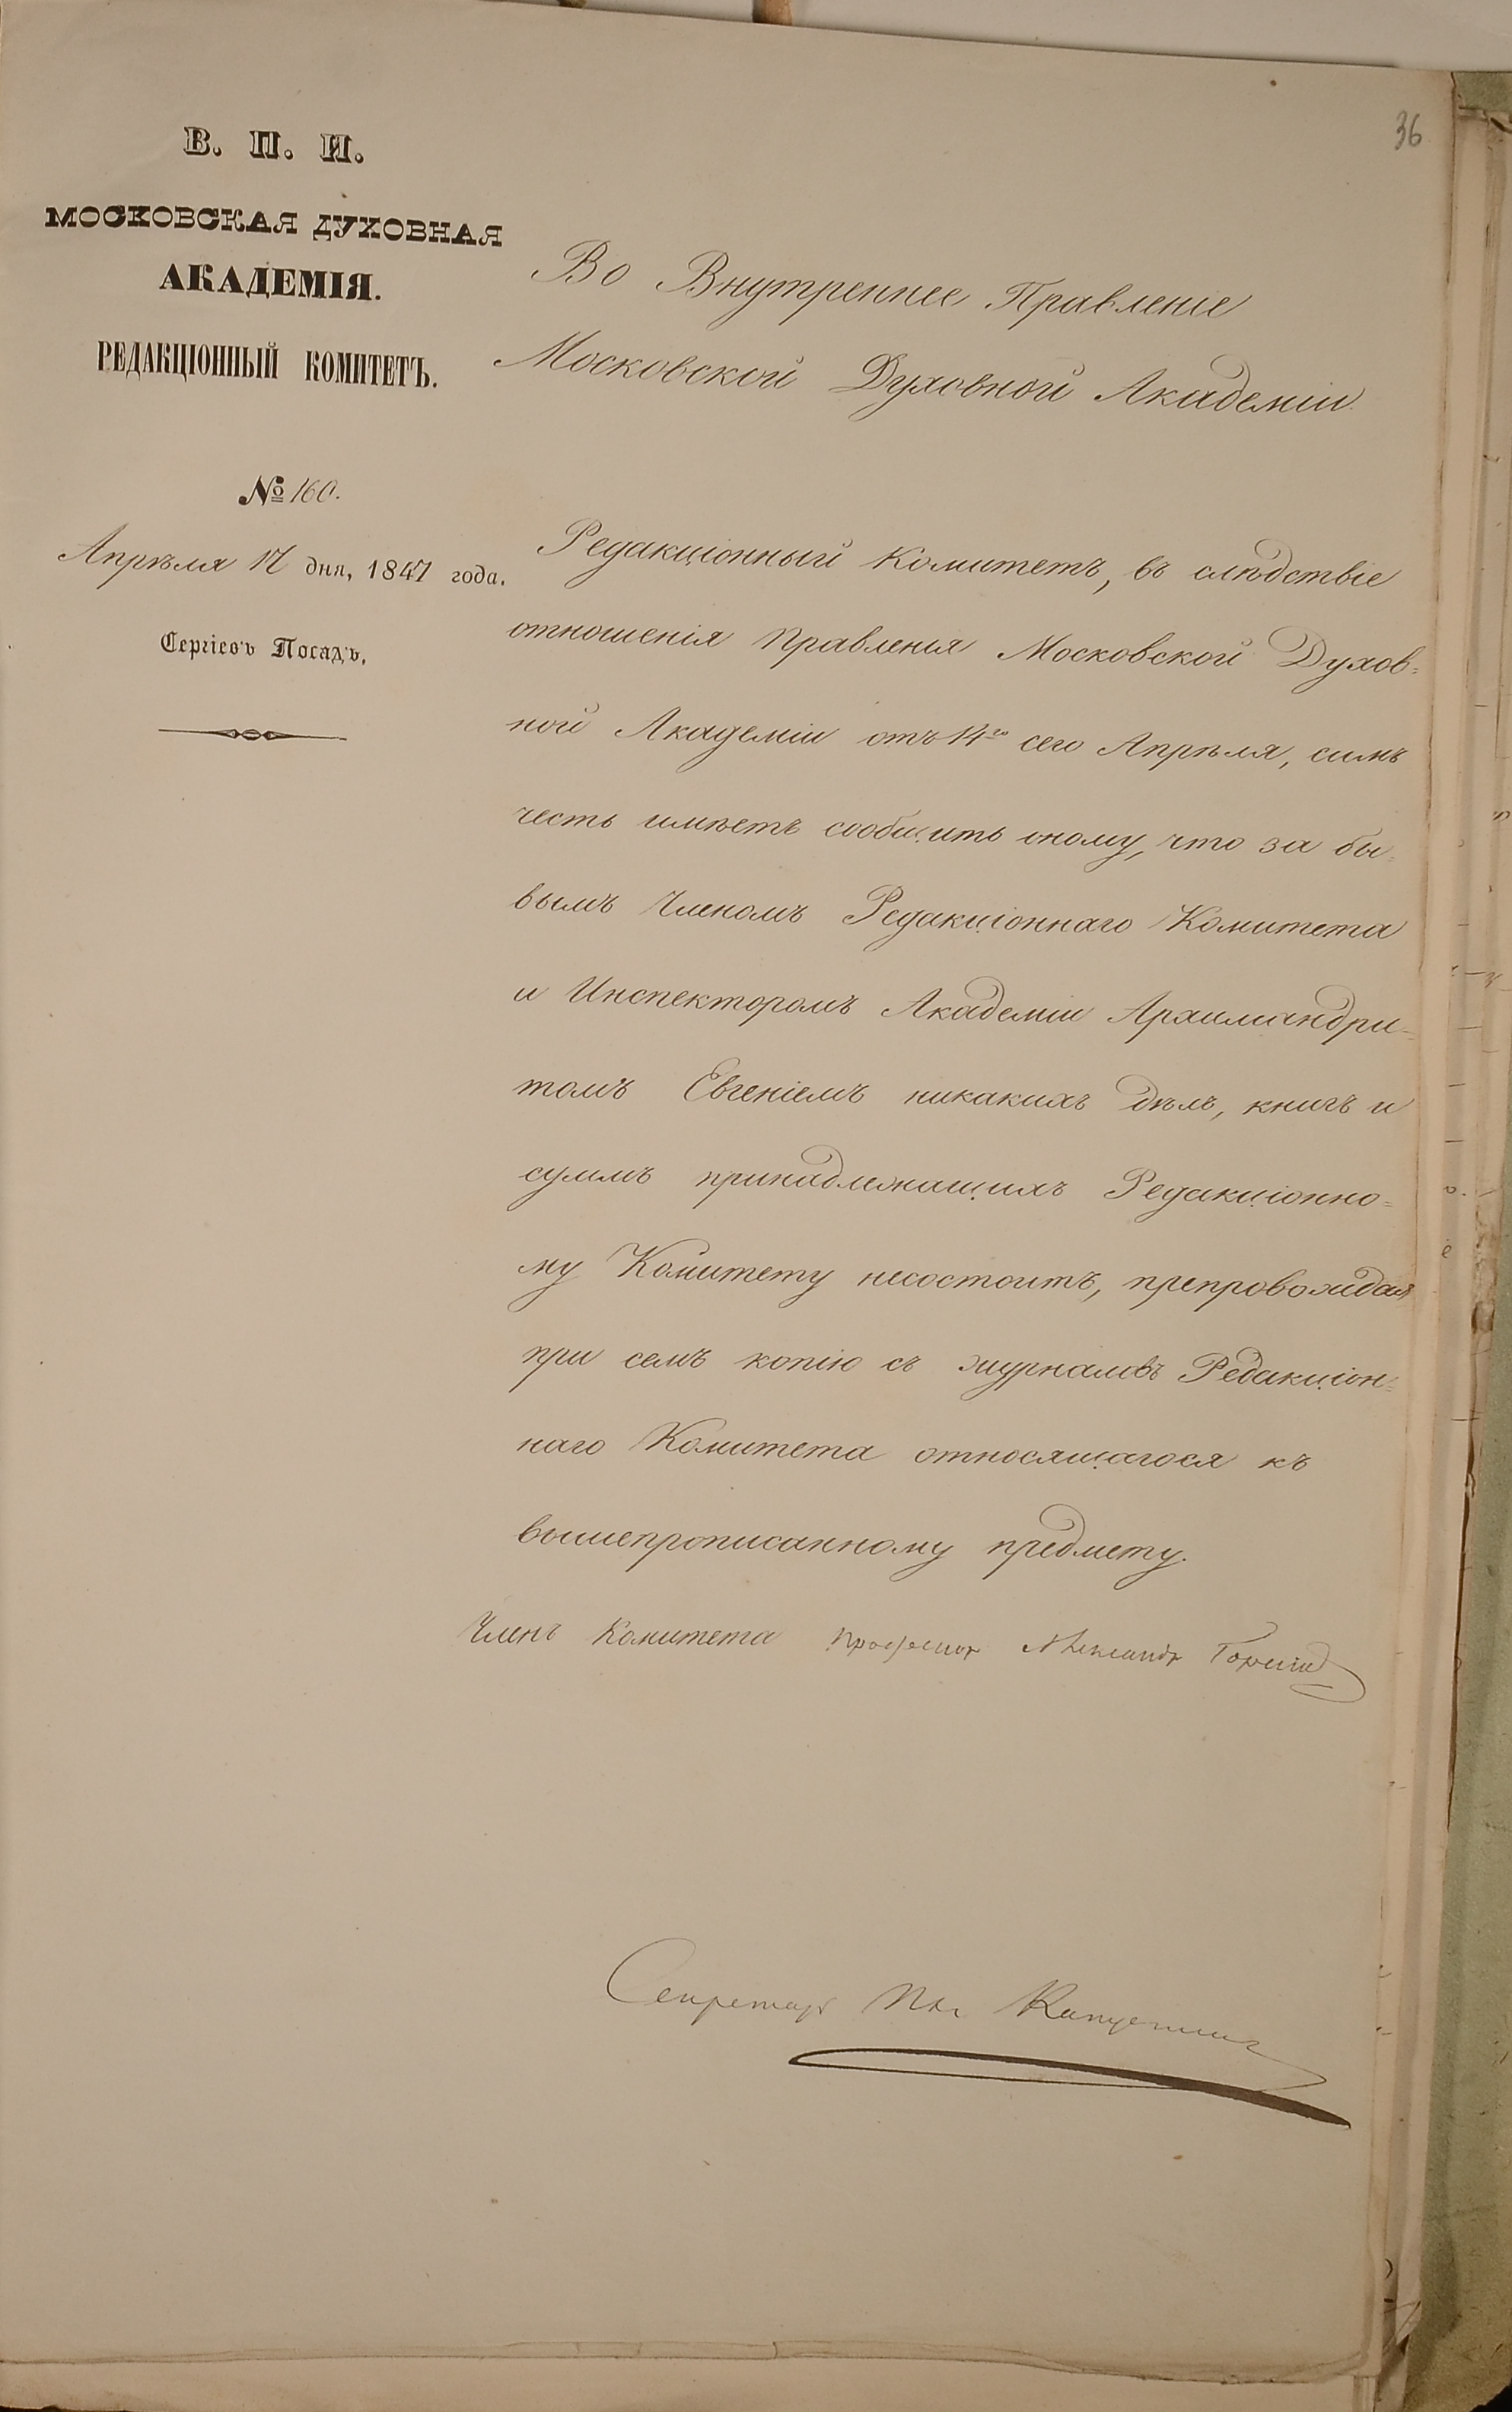 36
В. П. И.
МОСКОВСКАЯ ДУХОВНАЯ
АКАДЕМІЯ.
РЕДАКЦІОННЫЙ КОМИТЕТЪ.
№ 160.
Апрѣля 17 дня, 1847 года.
Сергіевъ Посадъ.
Во Внутреннее Правленіе
Московской Духовной Академіи.
Редакціонный Комитетъ, въ слѣдствіе
отношенія Правленія Московской Духов=
ной Академіи отъ 14го сего Апрѣля, симъ
честь имѣетъ сообщить оному, что за бы=
вымъ Членомъ Редакціоннаго Комитета
и Инспекторомъ Академіи Архимандри=
томъ Евгеніемъ никакихъ дѣлъ, книгъ и
суммъ принадлежащихъ Редакціонно=
му Комитету несостоитъ, препровождая
при семъ копію съ журналовъ Редакціон=
наго Комитета относящагося къ
вышепрописанному предмету.
Членъ Комитета Профессор Александр Горскій
Секретарь Капустинъ